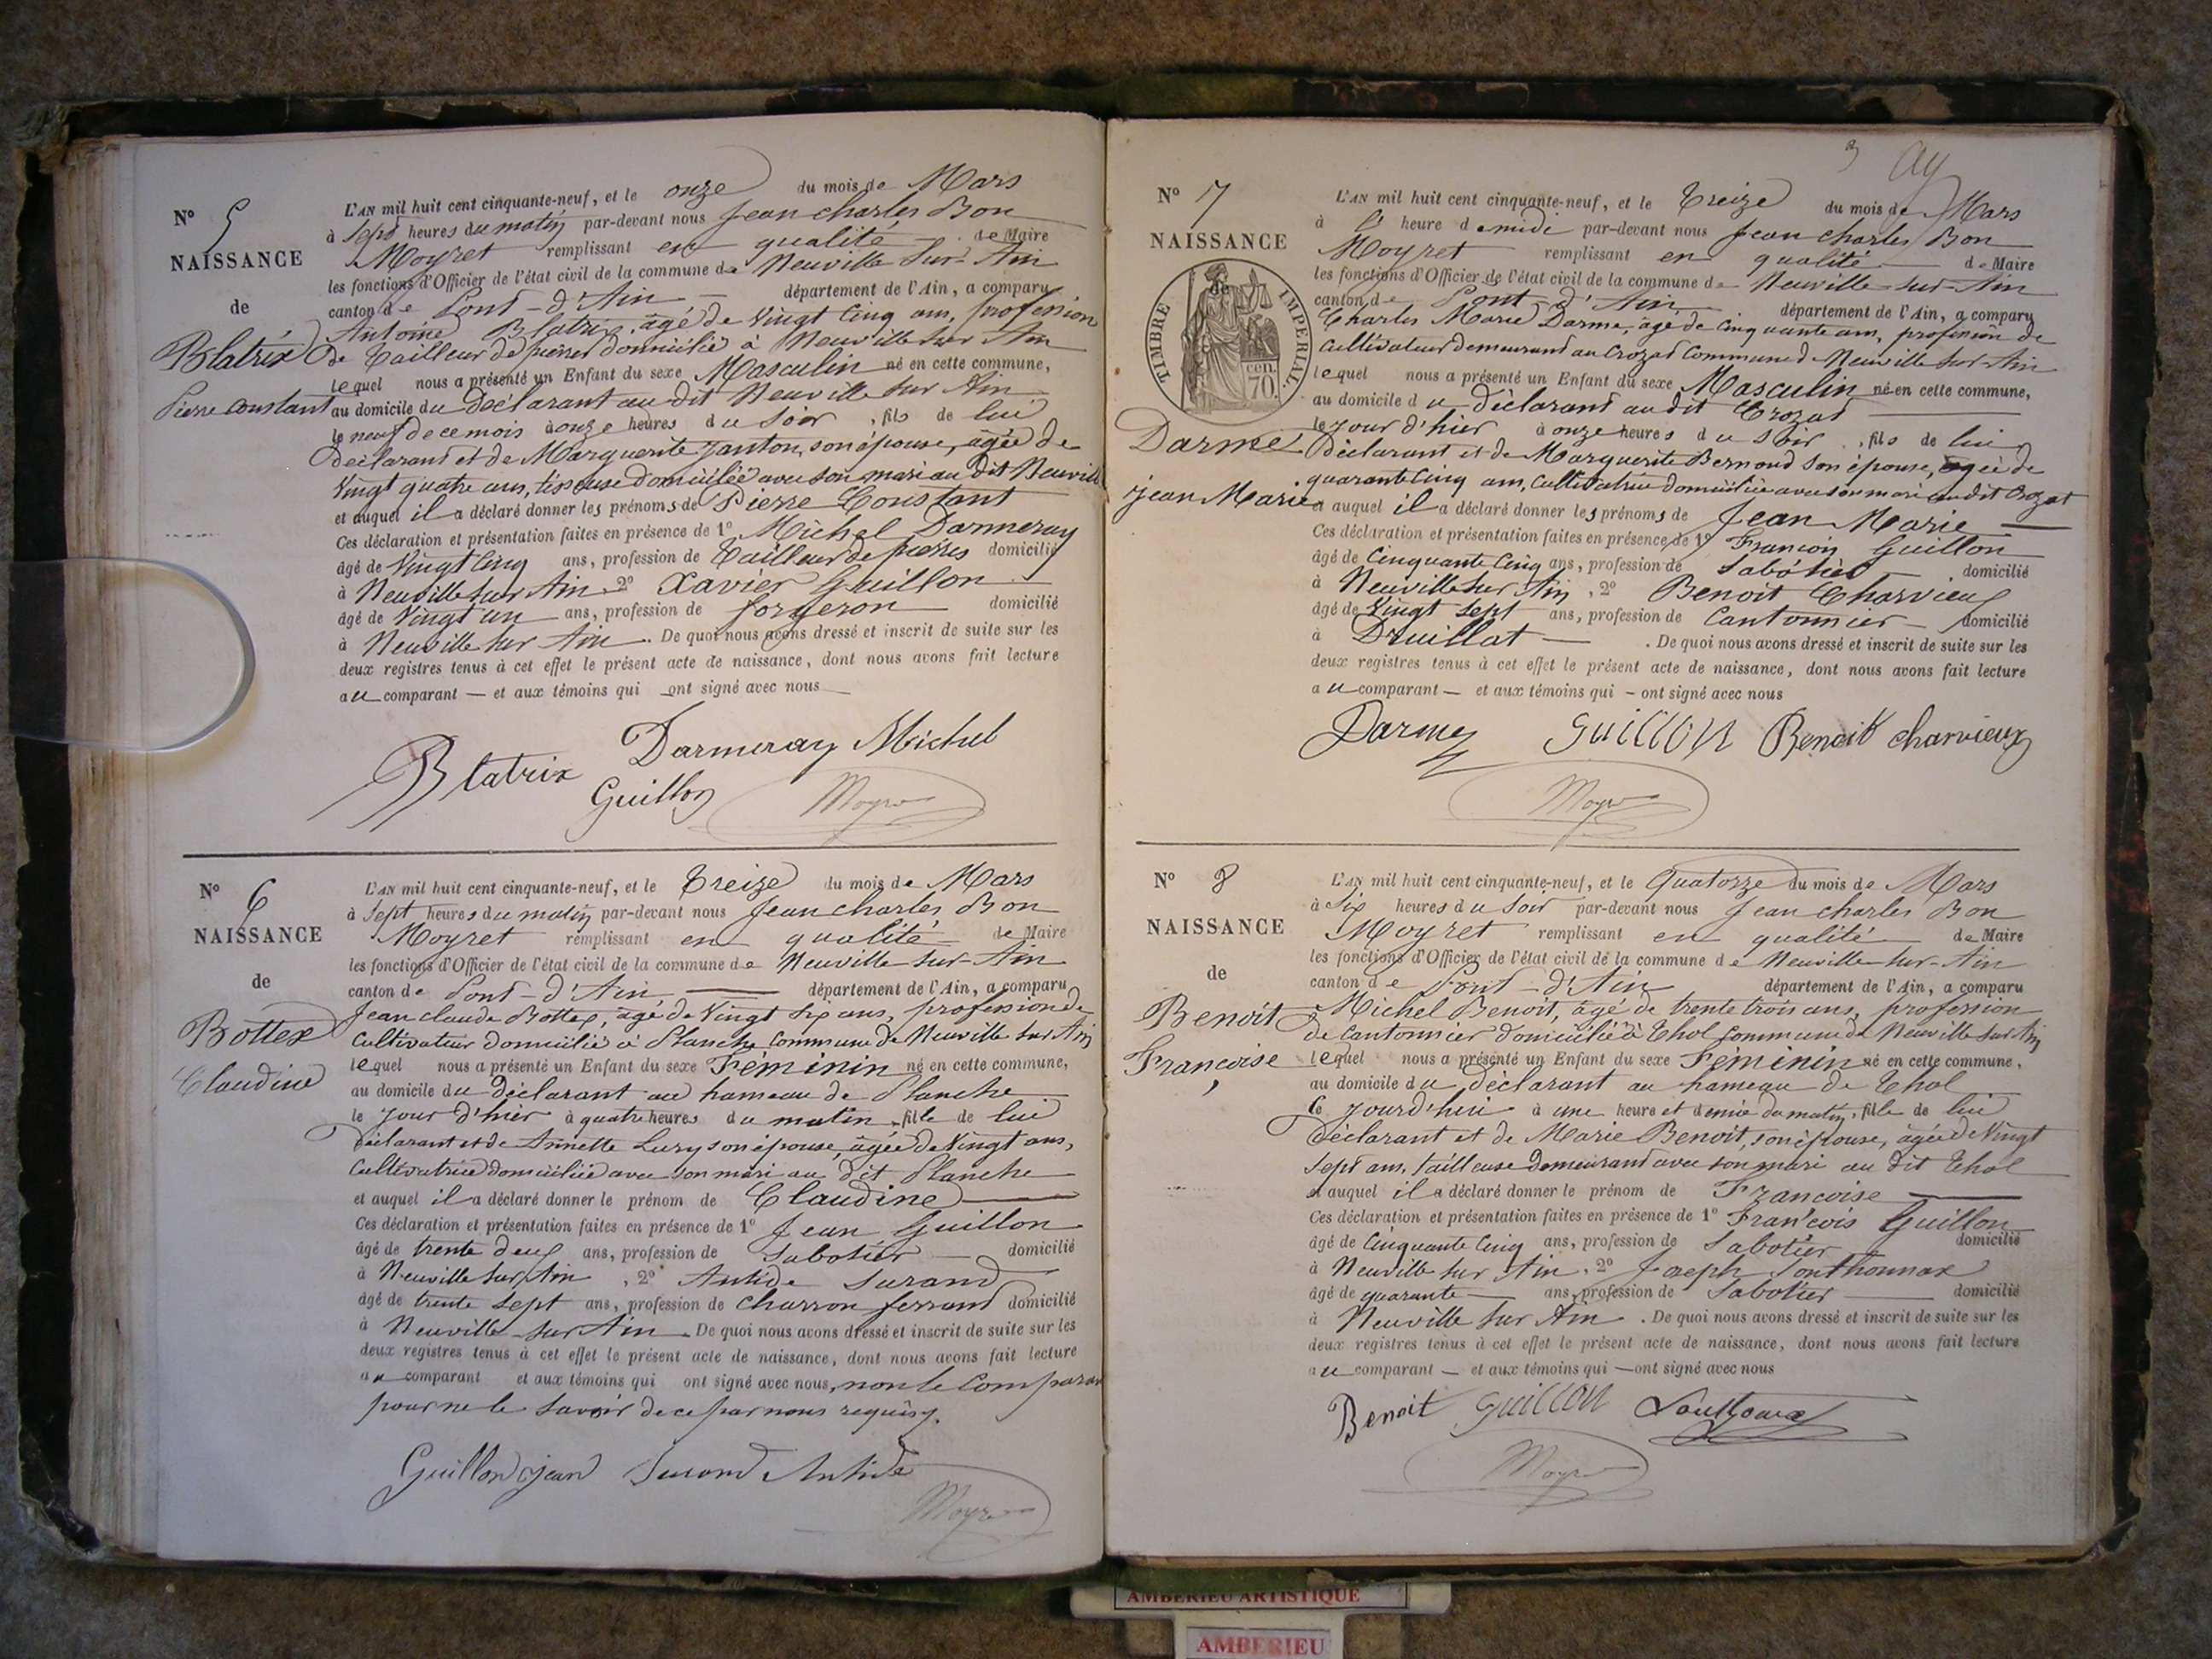 N° 5
NAISSANCE
de
Blatrix
Pierre Constant
L'AN mil huit cent cinquante-neuf, et le onze du mois de Mars
à Sept heures du matin par-devant nous Jean charles Bon
Moyret remplissant en qualité de Maire
les fonctions d'Officier de l'état civil de la commune de Neuville Sur Ain
canton de Pont-d'Ain département de l'Ain, a comparu
Antoine Blatrix, âgé de Vingt Cinq ans, profession
de Tailleur de pierres domicilié à Neuville sur Ain
lequel nous a présenté un Enfant du sexe Masculin né en cette commune,
au domicile du Déclarant au dit Neuville Sur Ain
le neuf de ce mois à onze heures du Soir, fils de lui
Déclarant et de Marguerite Janton, son épouse, âgée de
Vingt quatre ans, tisseuse domiciliée avec son mari au dit Neuville
et auquel il a déclaré donner les prénoms de Pierre Constant
Ces déclaration et présentation faites en présence de 1° Michel Darmeray
âgé de Vingt Cinq ans, profession de Tailleur de pierres domicilié
à Neuville Sur Ain 2° Xavier Guillon
âgé de Vingt un ans, profession de forgeron domicilié
à Neuville Sur Ain. De quoi nous avons dressé et inscrit de suite sur les
deux registres tenus à cet effet le présent acte de naissance, dont nous avons fait lecture
au comparant — et aux témoins qui ont signé avec nous
Blatrix Darmeray Michel
Guillon Moyret
N° 6
NAISSANCE
de
Bottex
Claudine
L'AN mil huit cent cinquante-neuf, et le Treize du mois de Mars
à Sept heures du matin par-devant nous Jean charles Bon
Moyret remplissant en qualité de Maire
les fonctions d'Officier de l'état civil de la commune de Neuville Sur Ain
canton de Pont-d'Ain département de l'Ain, a comparu
Jean claude Bottex, âgé de Vingt Six ans, profession de
Cultivateur domicilié à Planche Commune de Neuville Sur Ain
lequel nous a présenté un Enfant du sexe Féminin né en cette commune,
au domicile du Déclarant au hameau de Planche
le jour d'hier à quatre heures du matin, fille de lui
Déclarant et de Annette Lury son épouse, âgée de Vingt ans,
Cultivatrice domiciliée avec son mari au dit Planche
et auquel il a déclaré donner le prénom de Claudine
Ces déclaration et présentation faites en présence de 1° Jean Guillon
âgé de trente deux ans, profession de Sabotier domicilié
à Neuville Sur Ain, 2° Antide Surand
âgé de trente Sept ans, profession de Charron ferrand domicilié
à Neuville Sur Ain. De quoi nous avons dressé et inscrit de suite sur les
deux registres tenus à cet effet le présent acte de naissance, dont nous avons fait lecture
au comparant et aux témoins qui ont signé avec nous, non le Comparant
pour ne le Savoir de ce par nous requis.
Guillon jean Surand Antide
Moyret
N° 7
NAISSANCE
TIMBRE IMPERIAL.
70 cen.
Darme
Jean Marie
L'AN mil huit cent cinquante-neuf, et le Treize du mois de Mars
à l' heure de midi par-devant nous Jean charles Bon
Moyret remplissant en qualité de Maire
les fonctions d'Officier de l'état civil de la commune de Neuville-sur-Ain
canton de Pont-d'Ain département de l'Ain, a comparu
Charles Marie Darme, âgé de Cinquante ans, profession de
Cultivateur demeurant au Crozat Commune d Neuville Sur Ain
lequel nous a présenté un Enfant du sexe Masculin né en cette commune,
au domicile du déclarant au dit Crozat
le jour d'hier à onze heures du Soir, fils de lui
Déclarant et de Marguerite Bernoud Son épouse, âgée de
quarante Cinq ans, Cultivatrice domiciliée avec son mari au dit Crozat
et auquel il a déclaré donner les prénoms de Jean Marie
Ces déclaration et présentation faites en présence de 1° François Guillon
âgé de Cinquante Cinq ans, profession de Sabotier domicilié
à Neuville Sur Ain, 2° Benoit Charvieux
âgé de Vingt Sept ans, profession de Cantonnier domicilié
à Druillat. De quoi nous avons dressé et inscrit de suite sur les
deux registres tenus à cet effet le présent acte de naissance, dont nous avons fait lecture
au comparant — et aux témoins qui - ont signé avec nous
Darme Guillon Benoit charvieux
Moyret
N° 8
NAISSANCE
de
Benoit
Françoise
L'AN mil huit cent cinquante-neuf, et le Quatorze du mois de Mars
à Six heures du Soir par-devant nous Jean charles Bon
Moyret remplissant en qualité de Maire
les fonctions d'Officier de l'état civil de la commune de Neuville-Sur-Ain
canton de Pont-d'Ain département de l'Ain, a comparu
Michel Benoit, âgé de trente trois ans, profession
de Cantonnier domicilié à Thol Commune de Neuville Sur Ain
lequel nous a présenté un Enfant du sexe Féminin né en cette commune,
au domicile du déclarant au hameau de Thol
Ce jourd'hui à une heure et demie du matin, fille de lui
Déclarant et de Marie Benoit, son épouse, âgée de Vingt
Sept ans, tailleuse Demeurant avec son mari au dit Thol
et auquel il a déclaré donner le prénom de Françoise
Ces déclaration et présentation faites en présence de 1° François Guillon
âgé de Cinquante Cinq ans, profession de Sabotier domicilié
à Neuville Sur Ain, 2° Joseph Ponthonnax
âgé de quarante ans, profession de Sabotier domicilié
à Neuville Sur Ain. De quoi nous avons dressé et inscrit de suite sur les
deux registres tenus à cet effet le présent acte de naissance, dont nous avons fait lecture
au comparant — et aux témoins qui — ont signé avec nous
Benoit Guillon
Moyret
AMBERIEU ARTISTIQUE
AMBERIEU